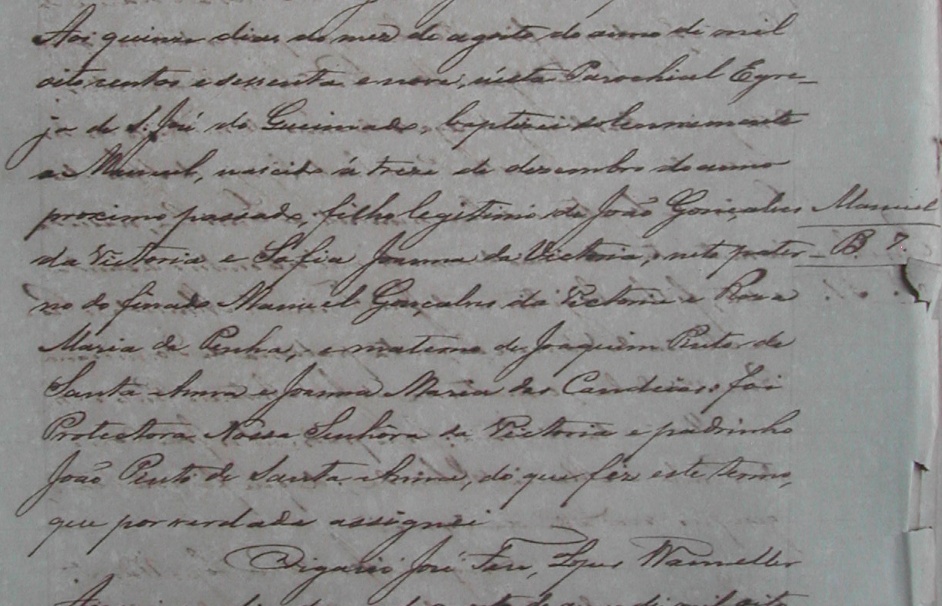 Aos quinze dias do mez de agosto do anno de mil
oito centos e sessenta e nove, nésta Parochial Egre-
ja de S. José do Queimado, baptizei solemnemente
a Manuel, nascido á treze de dezembro do anno
proximo passado, filho legitimo de João Gonçalves
da Victoria e Sofia Joanna da Victoria, neto pater-
no do finado Manuel Gonçalves da Victoria e Roza
Maria da Penha, e materno de Joaquim Pinto de
Santa Anna e Joanna Maria das Candeias: foi
Protectora Nossa Senhora da Victoria e padrinho
João Pinto de Santa Anna, do que fiz este termo,
que por verdade assignei
Vigario José Ferr. Lopes Wanzeller
Manuel
B. 7.